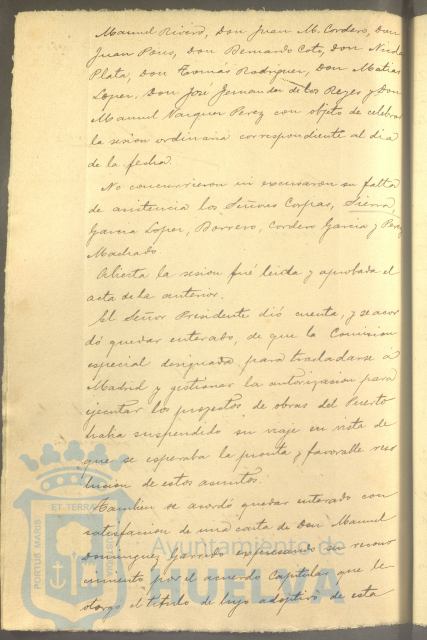 Manuel Rivero, Don Juan M. Cordero, Don
Juan Pons, Don Bernardo Coto, Don Nicolas
Plata, Don Tomás Rodriguez, Don Matias
Lopez, Don José Fernandez de los Reyes y Don
Manuel Vazquez Perez con objeto de celebrar
la sesion ordinaria correspondiente al dia
de la fecha.
No concurrieron ni excusaron su falta
de asistencia los Señores Corpas, Sierra,
Garcia Lopez, Borrero, Cordero Garcia y Perez
Machado
Abierta la sesion fué leida y aprobada el
acta de la anterior.
El Señor Presidente dió cuenta, y se acor
dó quedar enterado, de que la Comision
especial designada para trasladarse a
Madrid y gestionar la autorizacion para
ejecutar los proyectos de obras del Puerto
habia suspendido su viaje en vista de
que se esperaba la pronta y favorable reso
lucion de estos asuntos.
Tambien se acordó quedar enterado con
satisfaccion de una carta de Don Manuel
Dominguez Garrido expresando su recono
cimiento por el acuerdo Capitular que le
otorgó el título de hijo adoptivo de esta
PORTUS MARIS ET TERRAE
Ayuntamiento de
HUELVA